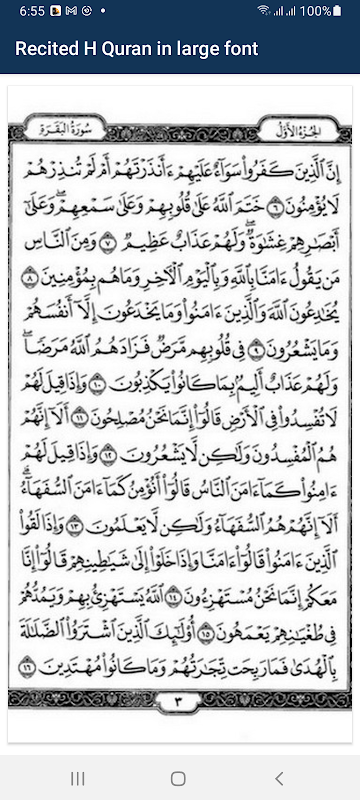 6:55
100%
Recited H Quran in large font
سُورَةُ البَقَرَةِ
الجُزْءُ الأَوَّلُ
إِنَّ ٱلَّذِينَ كَفَرُوا۟ سَوَآءٌ عَلَيْهِمْ ءَأَنذَرْتَهُمْ أَمْ لَمْ تُنذِرْهُمْ
لَا يُؤْمِنُونَ ٦ خَتَمَ ٱللَّهُ عَلَىٰ قُلُوبِهِمْ وَعَلَىٰ سَمْعِهِمْ ۖ وَعَلَىٰٓ
أَبْصَٰرِهِمْ غِشَٰوَةٌ ۖ وَلَهُمْ عَذَابٌ عَظِيمٌ ٧ وَمِنَ ٱلنَّاسِ
مَن يَقُولُ ءَامَنَّا بِٱللَّهِ وَبِٱلْيَوْمِ ٱلْءَاخِرِ وَمَا هُم بِمُؤْمِنِينَ ٨
يُخَٰدِعُونَ ٱللَّهَ وَٱلَّذِينَ ءَامَنُوا۟ وَمَا يَخْدَعُونَ إِلَّآ أَنفُسَهُمْ
وَمَا يَشْعُرُونَ ٩ فِى قُلُوبِهِم مَّرَضٌ فَزَادَهُمُ ٱللَّهُ مَرَضًا ۖ
وَلَهُمْ عَذَابٌ أَلِيمٌۢ بِمَا كَانُوا۟ يَكْذِبُونَ ١٠ وَإِذَا قِيلَ لَهُمْ
لَا تُفْسِدُوا۟ فِى ٱلْأَرْضِ قَالُوٓا۟ إِنَّمَا نَحْنُ مُصْلِحُونَ ١١ أَلَآ إِنَّهُمْ
هُمُ ٱلْمُفْسِدُونَ وَلَٰكِن لَّا يَشْعُرُونَ ١٢ وَإِذَا قِيلَ لَهُمْ
ءَامِنُوا۟ كَمَآ ءَامَنَ ٱلنَّاسُ قَالُوٓا۟ أَنُؤْمِنُ كَمَآ ءَامَنَ ٱلسُّفَهَآءُ ۗ
أَلَآ إِنَّهُمْ هُمُ ٱلسُّفَهَآءُ وَلَٰكِن لَّا يَعْلَمُونَ ١٣ وَإِذَا لَقُوا۟
ٱلَّذِينَ ءَامَنُوا۟ قَالُوٓا۟ ءَامَنَّا وَإِذَا خَلَوْا۟ إِلَىٰ شَيَٰطِينِهِمْ قَالُوٓا۟ إِنَّا
مَعَكُمْ إِنَّمَا نَحْنُ مُسْتَهْزِءُونَ ١٤ ٱللَّهُ يَسْتَهْزِئُ بِهِمْ وَيَمُدُّهُمْ
فِى طُغْيَٰنِهِمْ يَعْمَهُونَ ١٥ أُو۟لَٰٓئِكَ ٱلَّذِينَ ٱشْتَرَوُا۟ ٱلضَّلَٰلَةَ
بِٱلْهُدَىٰ فَمَا رَبِحَت تِّجَٰرَتُهُمْ وَمَا كَانُوا۟ مُهْتَدِينَ ١٦
٣